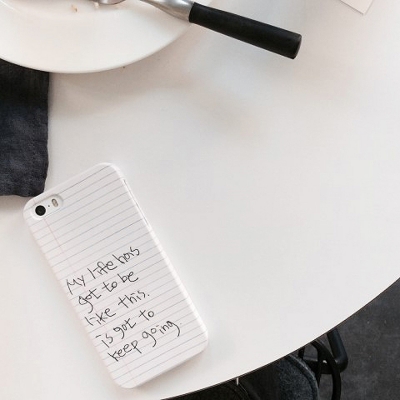 My life has
got to be
like this.
is got to
keep going